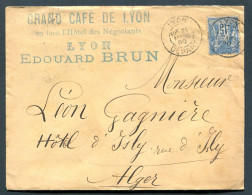 GRAND CAFE DE LYON
en face l'Hôtel des Négociants
LYON
EDOUARD BRUN
LYON
DEPART
Monsieur
Léon Gagnière
Hôtel d'Isly rue d'Isly
Alger